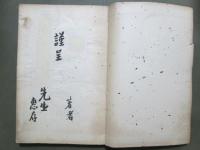 謹呈
著者
先生
恵存